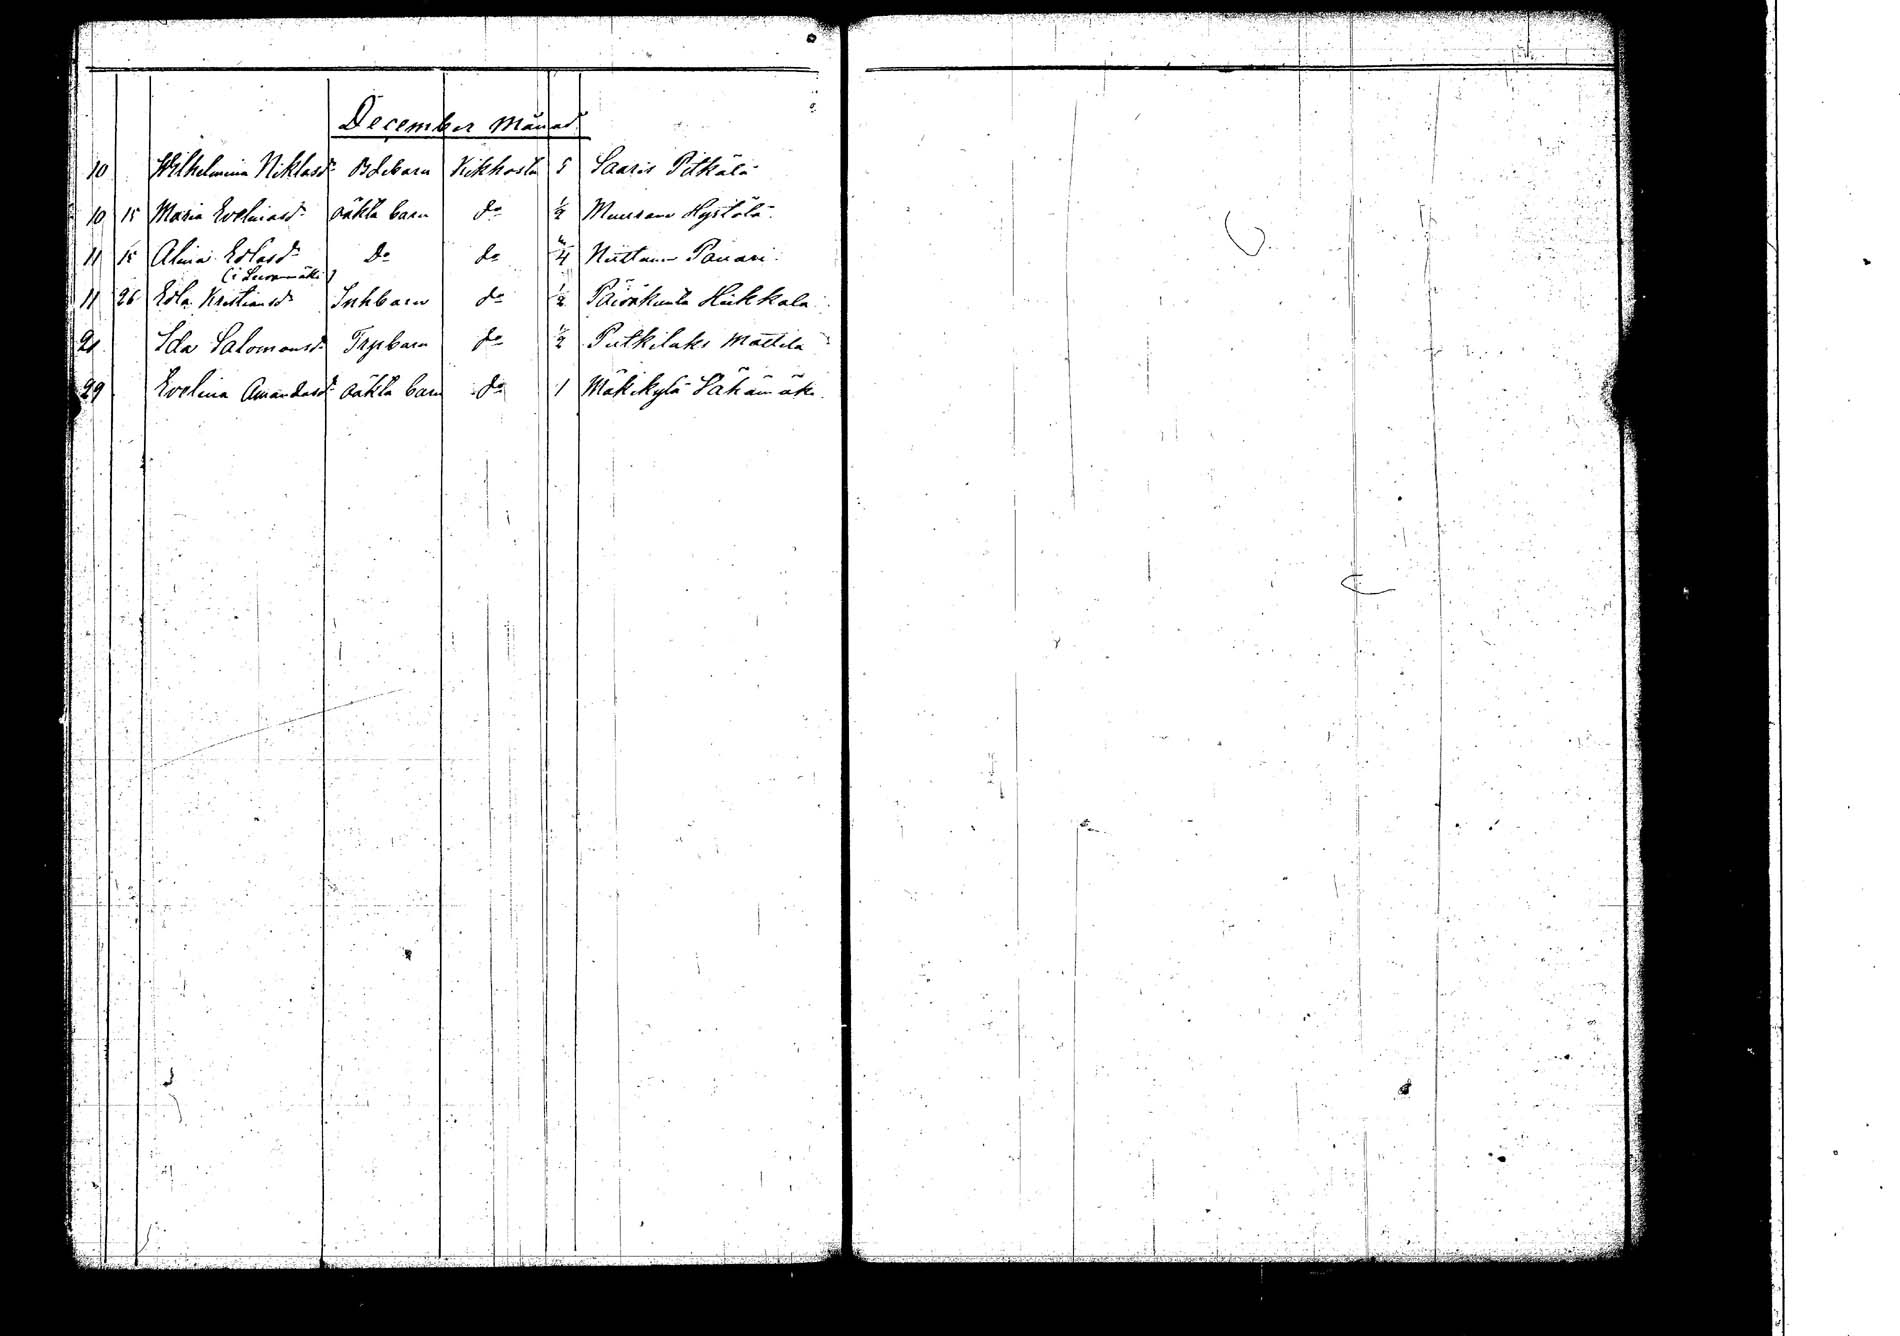 December Månad
10 Wilhelmina Niklasdr Bdebarn Kikhosta 5 Saaris Pitkälä
10 15 Maria Evelinasdr oäkta barn do 1/2 Muurans Hystölä
11 15 Alma Edlasdr Do do 4 Niittann Panari
(i Luoramäki)
11 26 Edla Kristiansdr Inhbarn do 1/2 Päiväkunta Hiekkala
21 Ida Salomonsdr Trpbarn do 1/2 Putkilaks Mattila
29 Evelina Amandasdr oäkta barn do 1 Mäkikylä Lähämäki